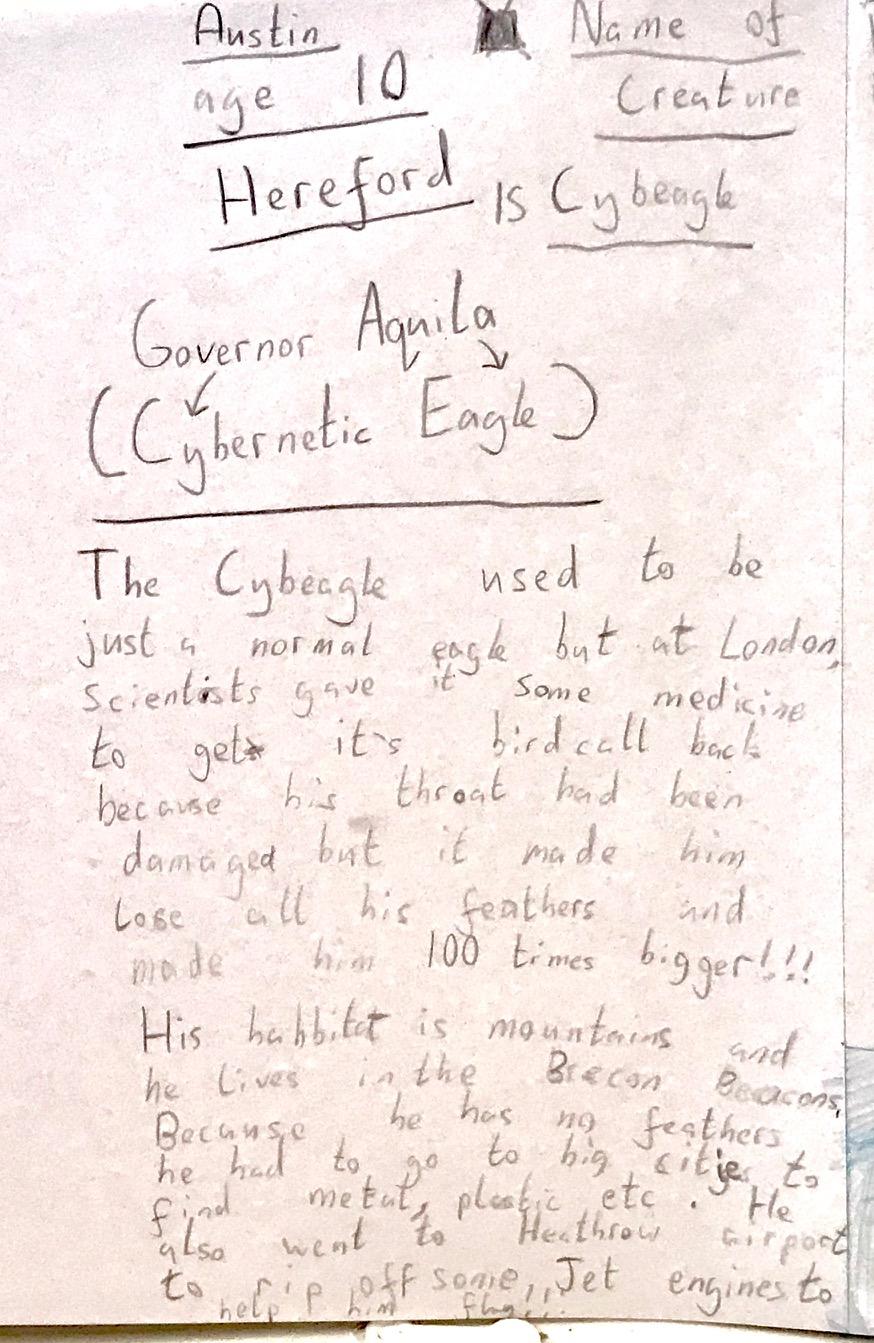 Austin
age 10
Hereford
Name of
Creature
is Cybeagle
Governor Aquila
(Cybernetic Eagle)
The Cybeagle used to be
just a normal eagle but at London,
scientists gave it some medicine
to get it's birdcall back
because his throat had been
damaged but it made him
lose all his feathers and
made him 100 times bigger!!!
His habbitat is mountains and
he lives in the Brecon Beacons,
Because he has no feathers
he had to go to big cities to
find metal, plastic etc. He
also went to Heathrow airport
to rip off some Jet engines to
help him